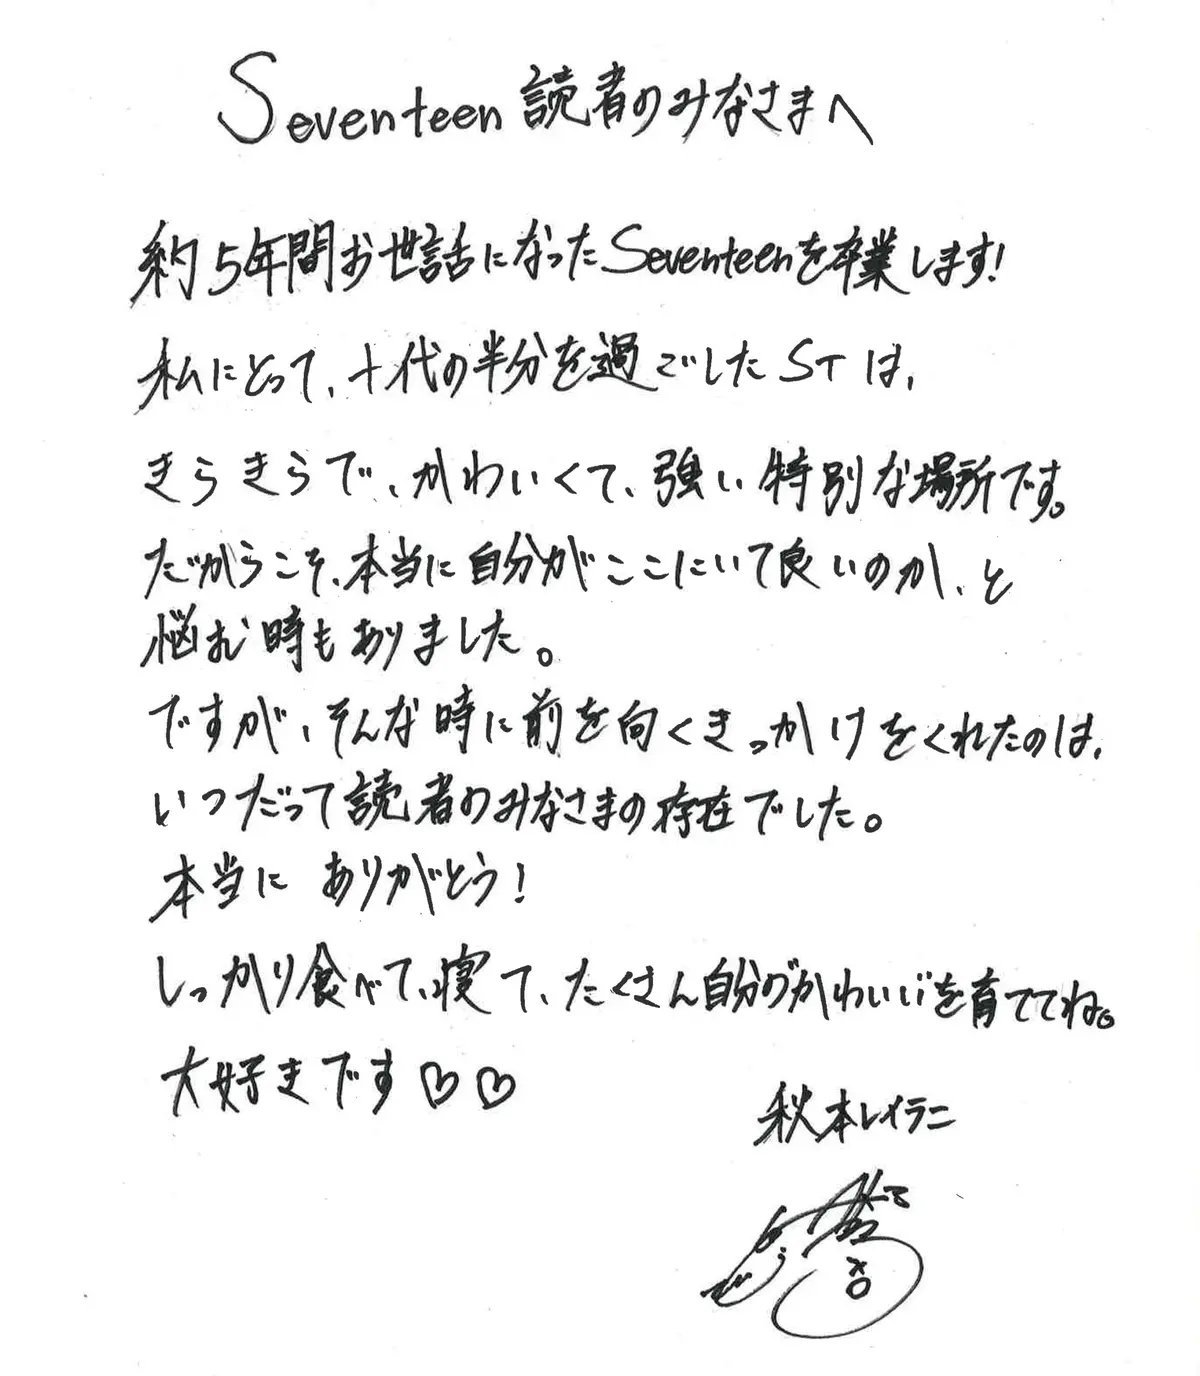 Seventeen 読者のみなさまへ
約5年間お世話になったSeventeenを卒業します!
私にとって、十代の半分を過ごしたSTは、
きらきらで、かわいくて、強い特別な場所です。
だからこそ、本当に自分がここにいて良いのか、と
悩む時もありました。
ですが、そんな時に前を向くきっかけをくれたのは、
いつだって読者のみなさまの存在でした。
本当に ありがとう!
しっかり食べて、寝て、たくさん自分の"かわいい"を育ててね。
大好きです♡♡
秋本レイラニ